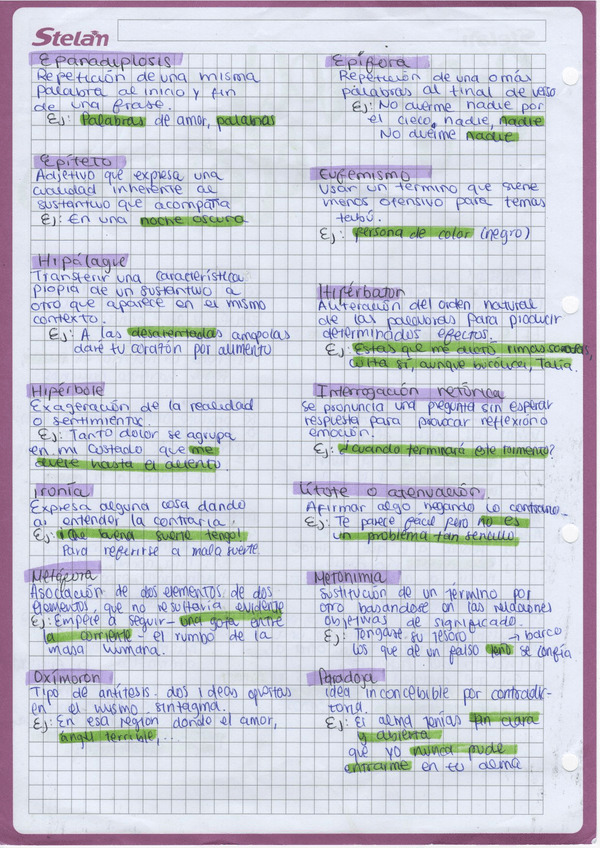 Stelan
Epanadiplosis
Repetición de una misma
palabra al inicio y fin
de una frase.
Ej: Palabras de amor, palabras
Epíteto
Adjetivo que expresa una
cualidad inherente al
sustantivo que acompaña
Ej: En una noche oscura
Hipálague
Transferir una característica
propia de un sustantivo a
otro que aparece en el mismo
contexto.
Ej: A las desalentadas amapolas
daré tu corazón por alimento
Hipérbole
Exageración de la realidad
o sentimientos.
Ej: Tanto dolor se agrupa
en mi costado que me
duele hasta el aliento.
Ironía
Expresa alguna cosa dando
a entender la contraria.
Ej: ¡Qué buena suerte tengo!
Para referirse a mala suerte
Metáfora
Asociación de dos elementos de dos
elementos, que no resultaría evidente
Ej: Empecé a seguir - una gota entre
la corriente - el rumbo de la
masa humana.
Oxímoron
Tipo de antítesis. dos ideas opuestas
en el mismo sintagma.
Ej: En esa región donde el amor,
ángel terrible,...
Epífora
Repetición de una o más
palabras al final de verso
Ej: No duerme nadie por
el cielo. nadie, nadie
No duerme nadie
Eufemismo
Usar un término que suene
menos ofensivo para temas
tabú.
Ej: persona de color (negro)
Hipérbaton
Alteración del orden natural
de las palabras para producir
determinados efectos.
Ej: Estas que me dictó rimas sonoras,
culta sí, aunque bucólica, Talía.
Interrogación retórica
se pronuncia una pregunta sin esperar
respuesta para provocar reflexión o
emoción.
Ej: ¿cuándo terminará este tormento?
Lítote o atenuación
Afirmar algo negando lo contrario.
Ej: Te parece fácil pero no es
un problema tan sencillo
Metonimia
sustitución de un término por
otro basándose en las relaciones
objetivas de significado.
Ej: Tóngase su tesoro → barco
los que de un falso leño se confía
Paradoja
idea inconcebible por contradic-
toria.
Ej: El alma tenías tan clara
y abierta
que yo nunca pude
entrarme en tu alma